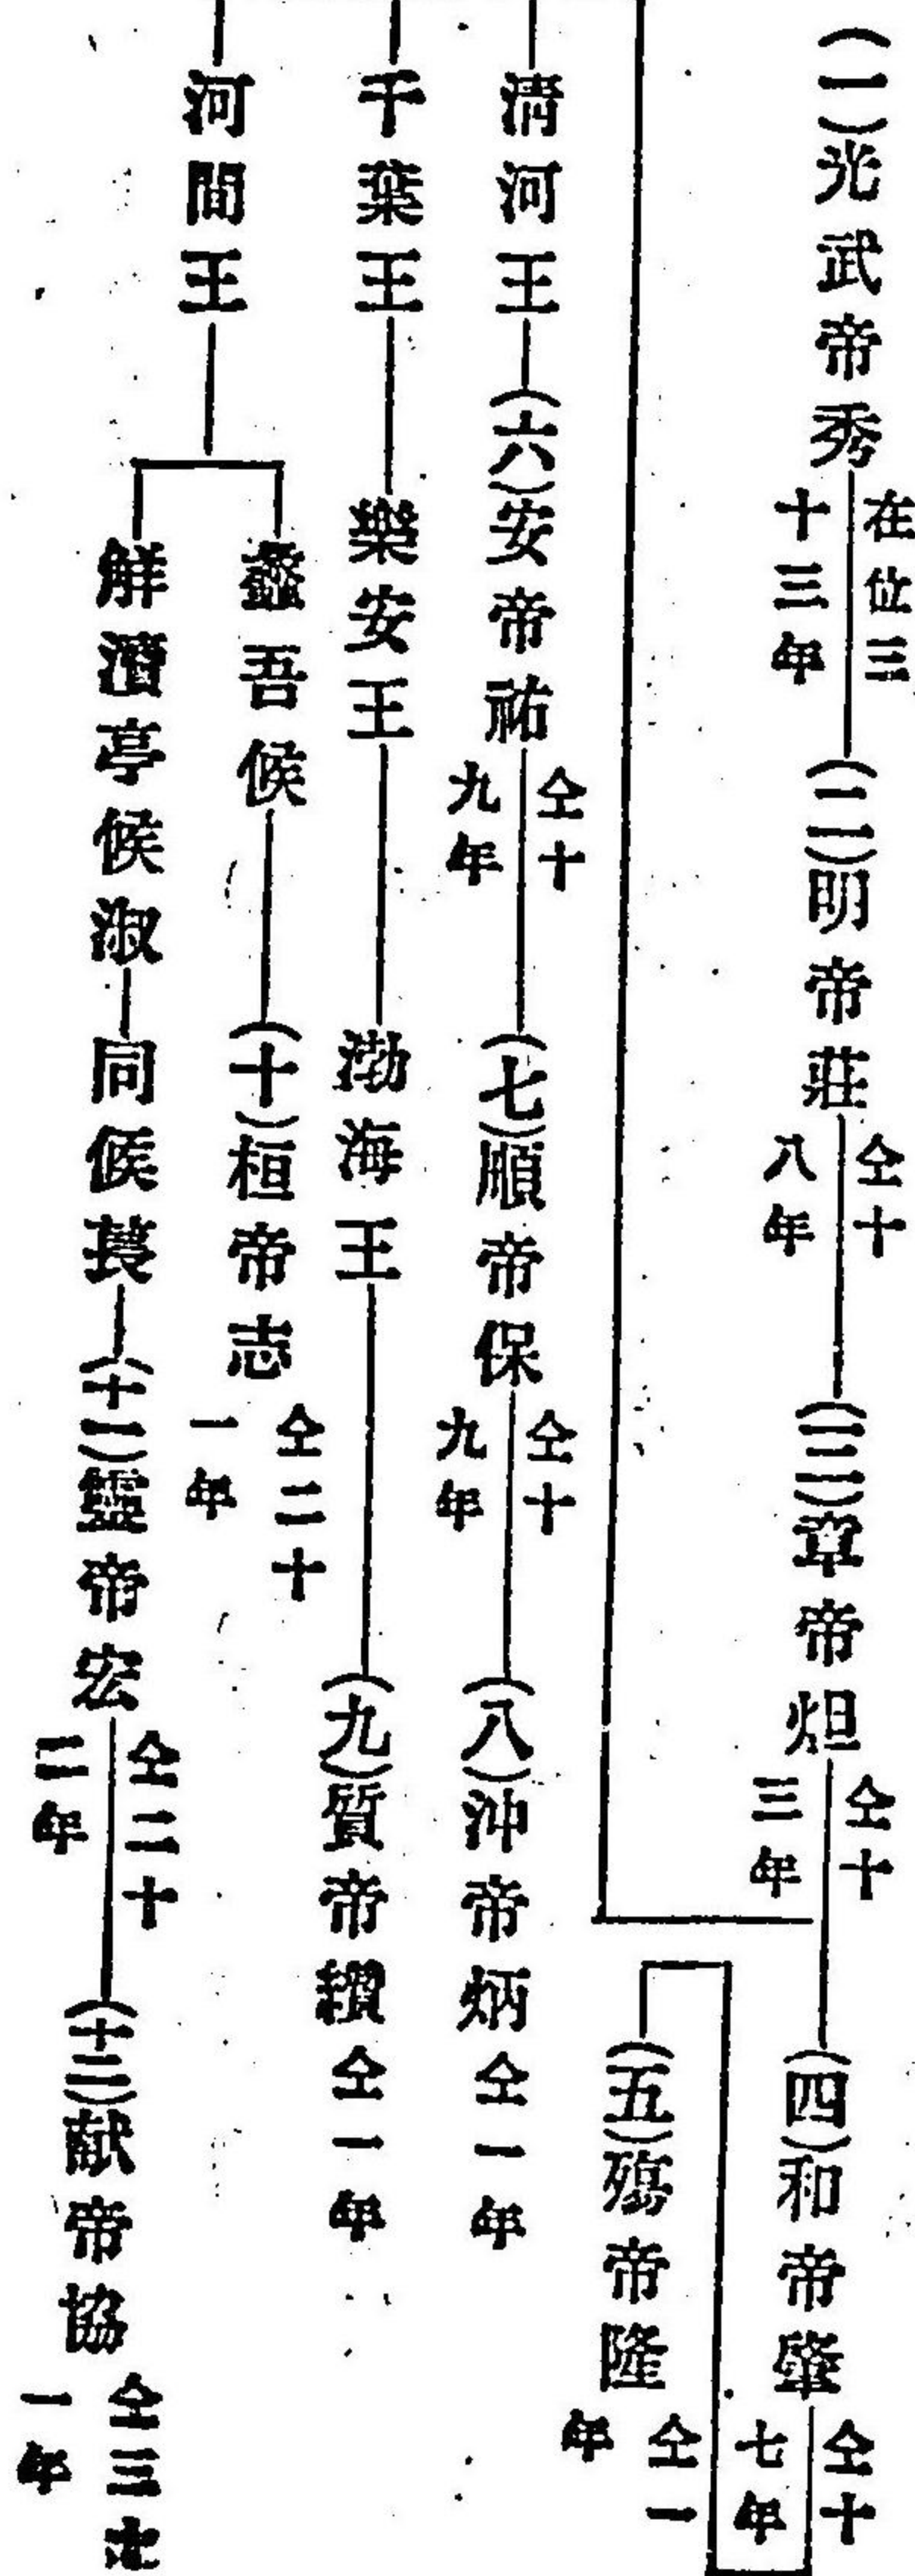 (一)光武帝秀 在位三十三年 (二)明帝莊 仝十八年 (三)章帝炟 仝十三年 (四)和帝肇 仝十七年
(五)殤帝隆 仝一年
淸河王 (六)安帝祐 仝十九年 (七)順帝保 仝十九年 (八)沖帝炳 仝一年
千葉王 樂安王 渤海王 (九)質帝纘 仝一年
河間王
蠡吾候 (十)桓帝志 仝二十一年
解瀆亭候淑 同候萇 (十一)靈帝宏 仝二十二年 (十二)献帝協 仝三十一年